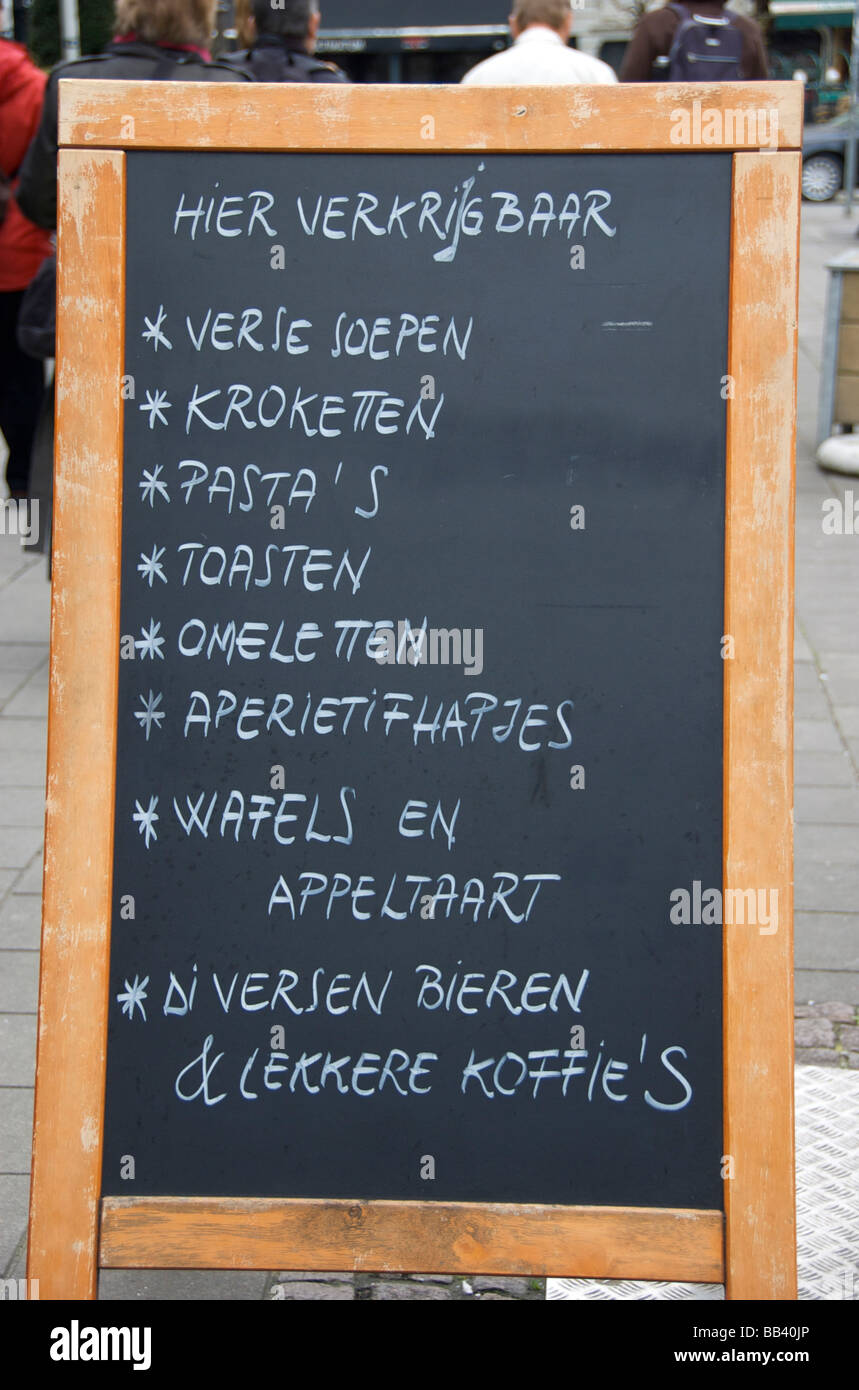 HIER VERKRIJGBAAR
* VERSE SOEPEN
* KROKETTEN
* PASTA'S
* TOASTEN
* OMELETTEN
* APERIETIFHAPJES
* WAFELS EN
APPELTAART
* DIVERSEN BIEREN
& LEKKERE KOFFIE'S
alamy stock photo
BB40JP
www.alamy.com